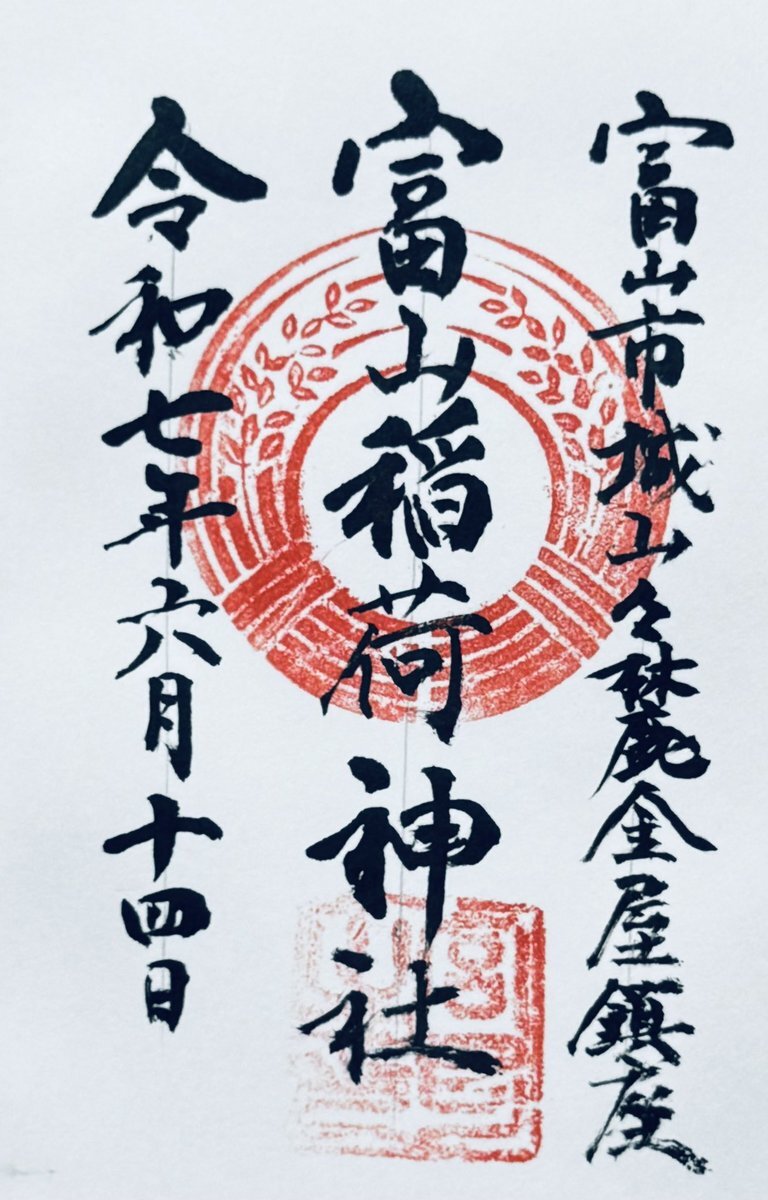 富山市城山々麓金屋鎮座
富山稲荷神社
令和七年六月十四日